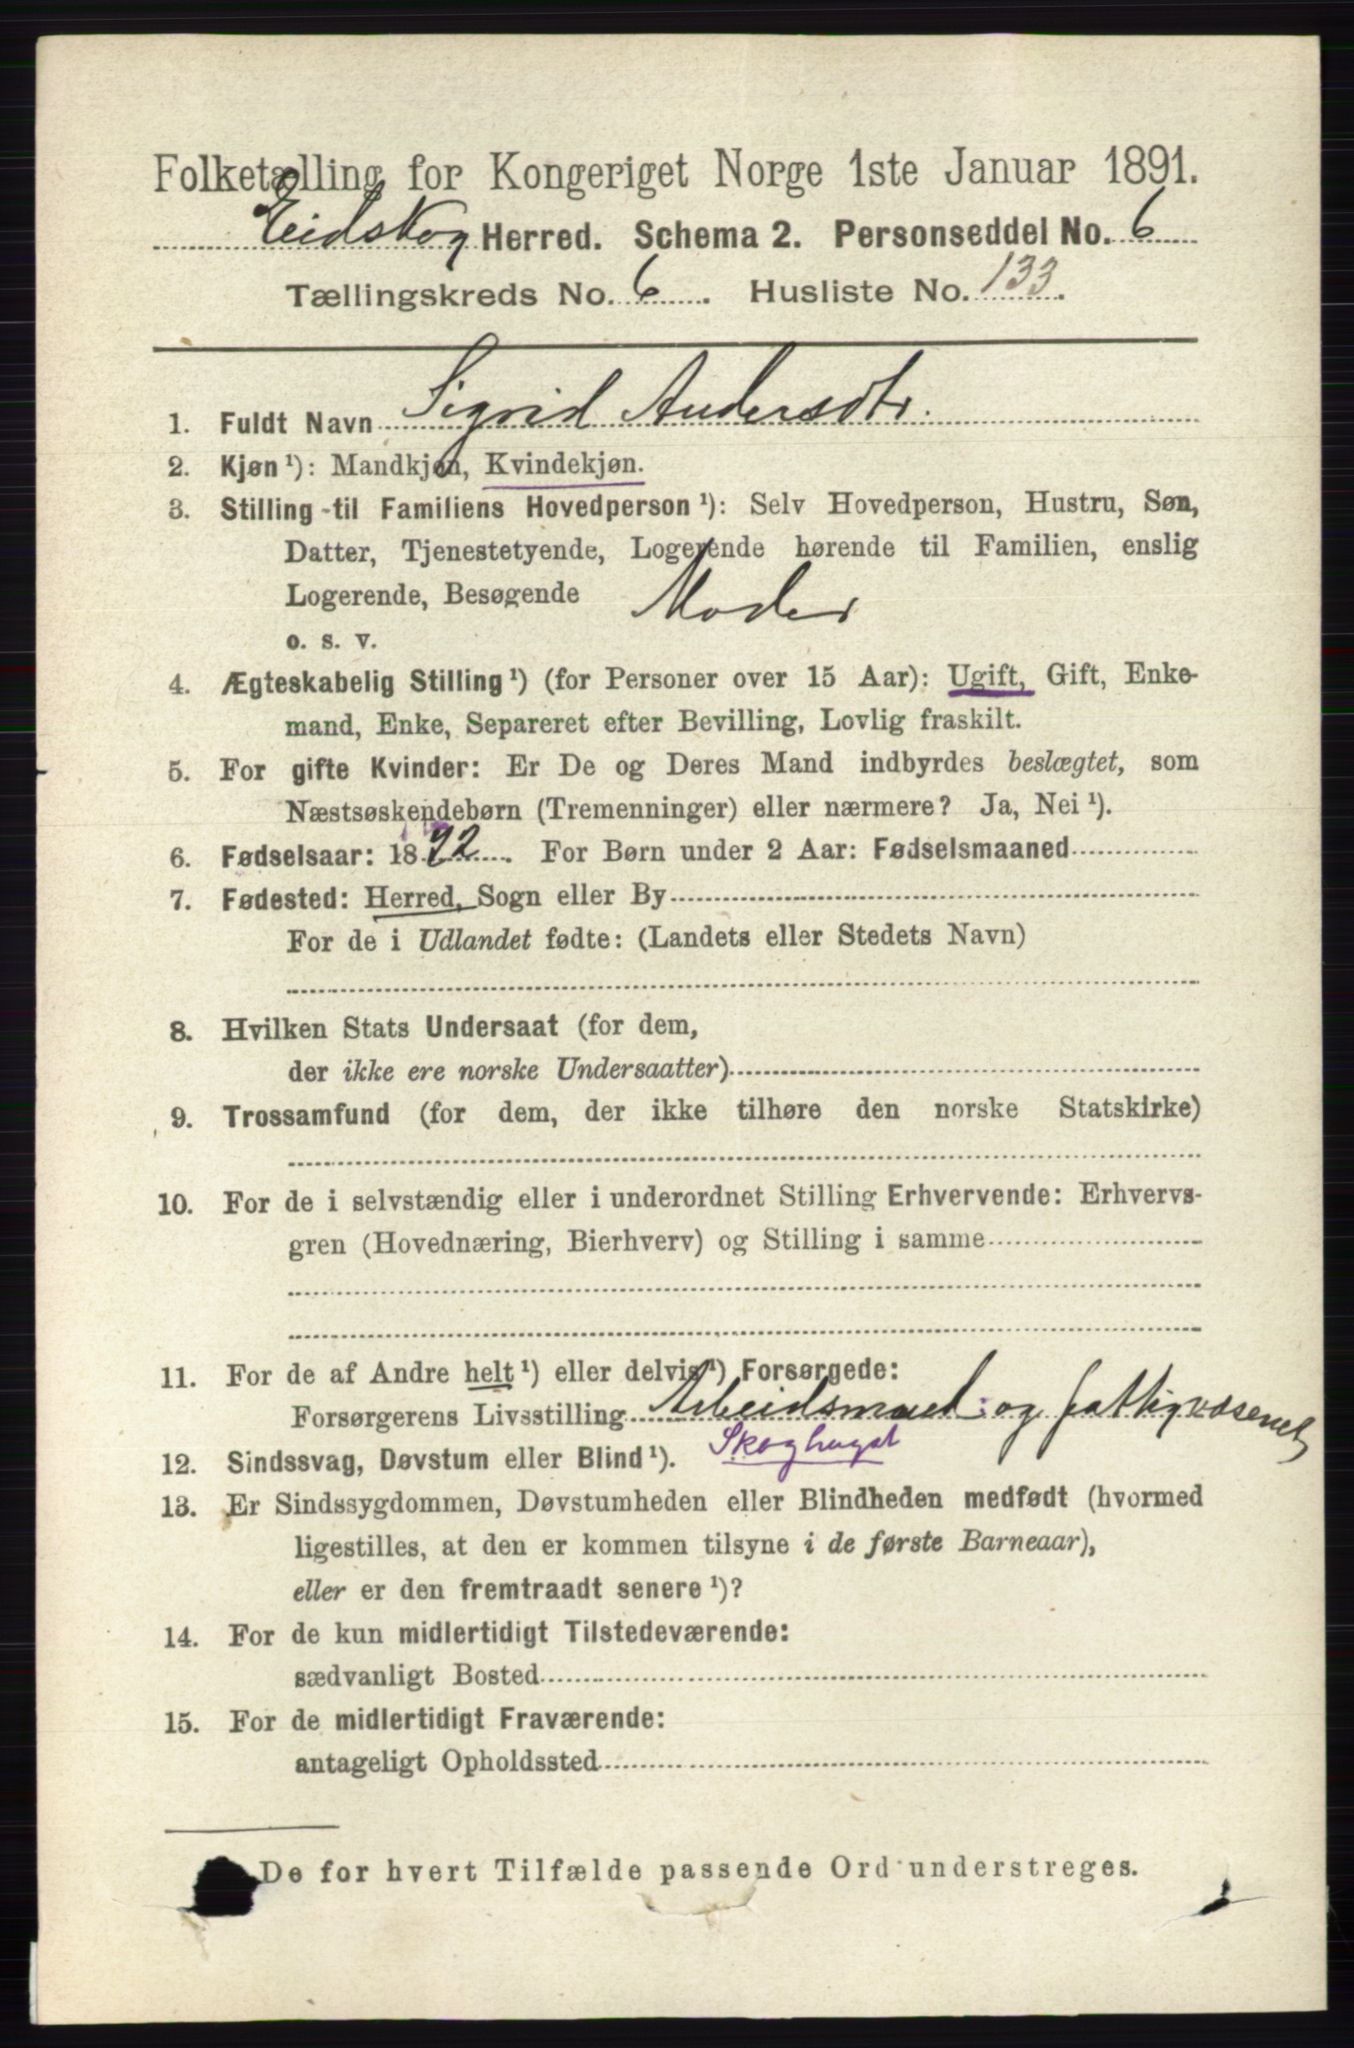 Folketælling for Kongeriget Norge 1ste Januar 1891.
Eidskog Herred. Schema 2. Personseddel No. 6
Tællingskreds No. 6. Husliste No. 133.
1. Fuldt Navn Sigrid Andersdtr.
2. Kjøn ¹): Mandkjøn, Kvindekjøn.
3. Stilling til Familiens Hovedperson ¹): Selv Hovedperson, Hustru, Søn,
Datter, Tjenestetyende, Logerende hørende til Familien, enslig
Logerende, Besøgende Moder
o. s. v.
4. Ægteskabelig Stilling ¹) (for Personer over 15 Aar): Ugift, Gift, Enke-
mand, Enke, Separeret efter Bevilling, Lovlig fraskilt.
5. For gifte Kvinder: Er De og Deres Mand indbyrdes beslægtet, som
Næstsøskendebørn (Tremenninger) eller nærmere? Ja, Nei ¹).
6. Fødselsaar: 18 . For Børn under 2 Aar: Fødselsmaaned
7. Fødested: Herred, Sogn eller By
For de i Udlandet fødte: (Landets eller Stedets Navn)
8. Hvilken Stats Undersaat (for dem,
der ikke ere norske Undersaatter)
9. Trossamfund (for dem, der ikke tilhøre den norske Statskirke)
10. For de i selvstændig eller i underordnet Stilling Erhvervende: Erhvervs-
gren (Hovednæring, Bierhverv) og Stilling i samme
11. For de af Andre helt ¹) eller delvis ¹) Forsørgede:
Forsørgerens Livsstilling Arbeidsmand og fattigvæsenet
12. Sindssvag, Døvstum eller Blind ¹). Skoghugst
13. Er Sindssygdommen, Døvstumheden eller Blindheden medfødt (hvormed
ligestilles, at den er kommen tilsyne i de første Barneaar),
eller er den fremtraadt senere ¹)?
14. For de kun midlertidigt Tilstedeværende:
sædvanligt Bosted
15. For de midlertidigt Fraværende:
antageligt Opholdssted
De for hvert Tilfælde passende Ord understreges.